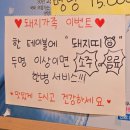 명 15,000
♥돼지가족 이벤트♥
한 테이블에 "돼지띠"
두명 이상이면 소주 or 음료
한병 서비스!!
♥맛있게 드시고 건강하세요♥